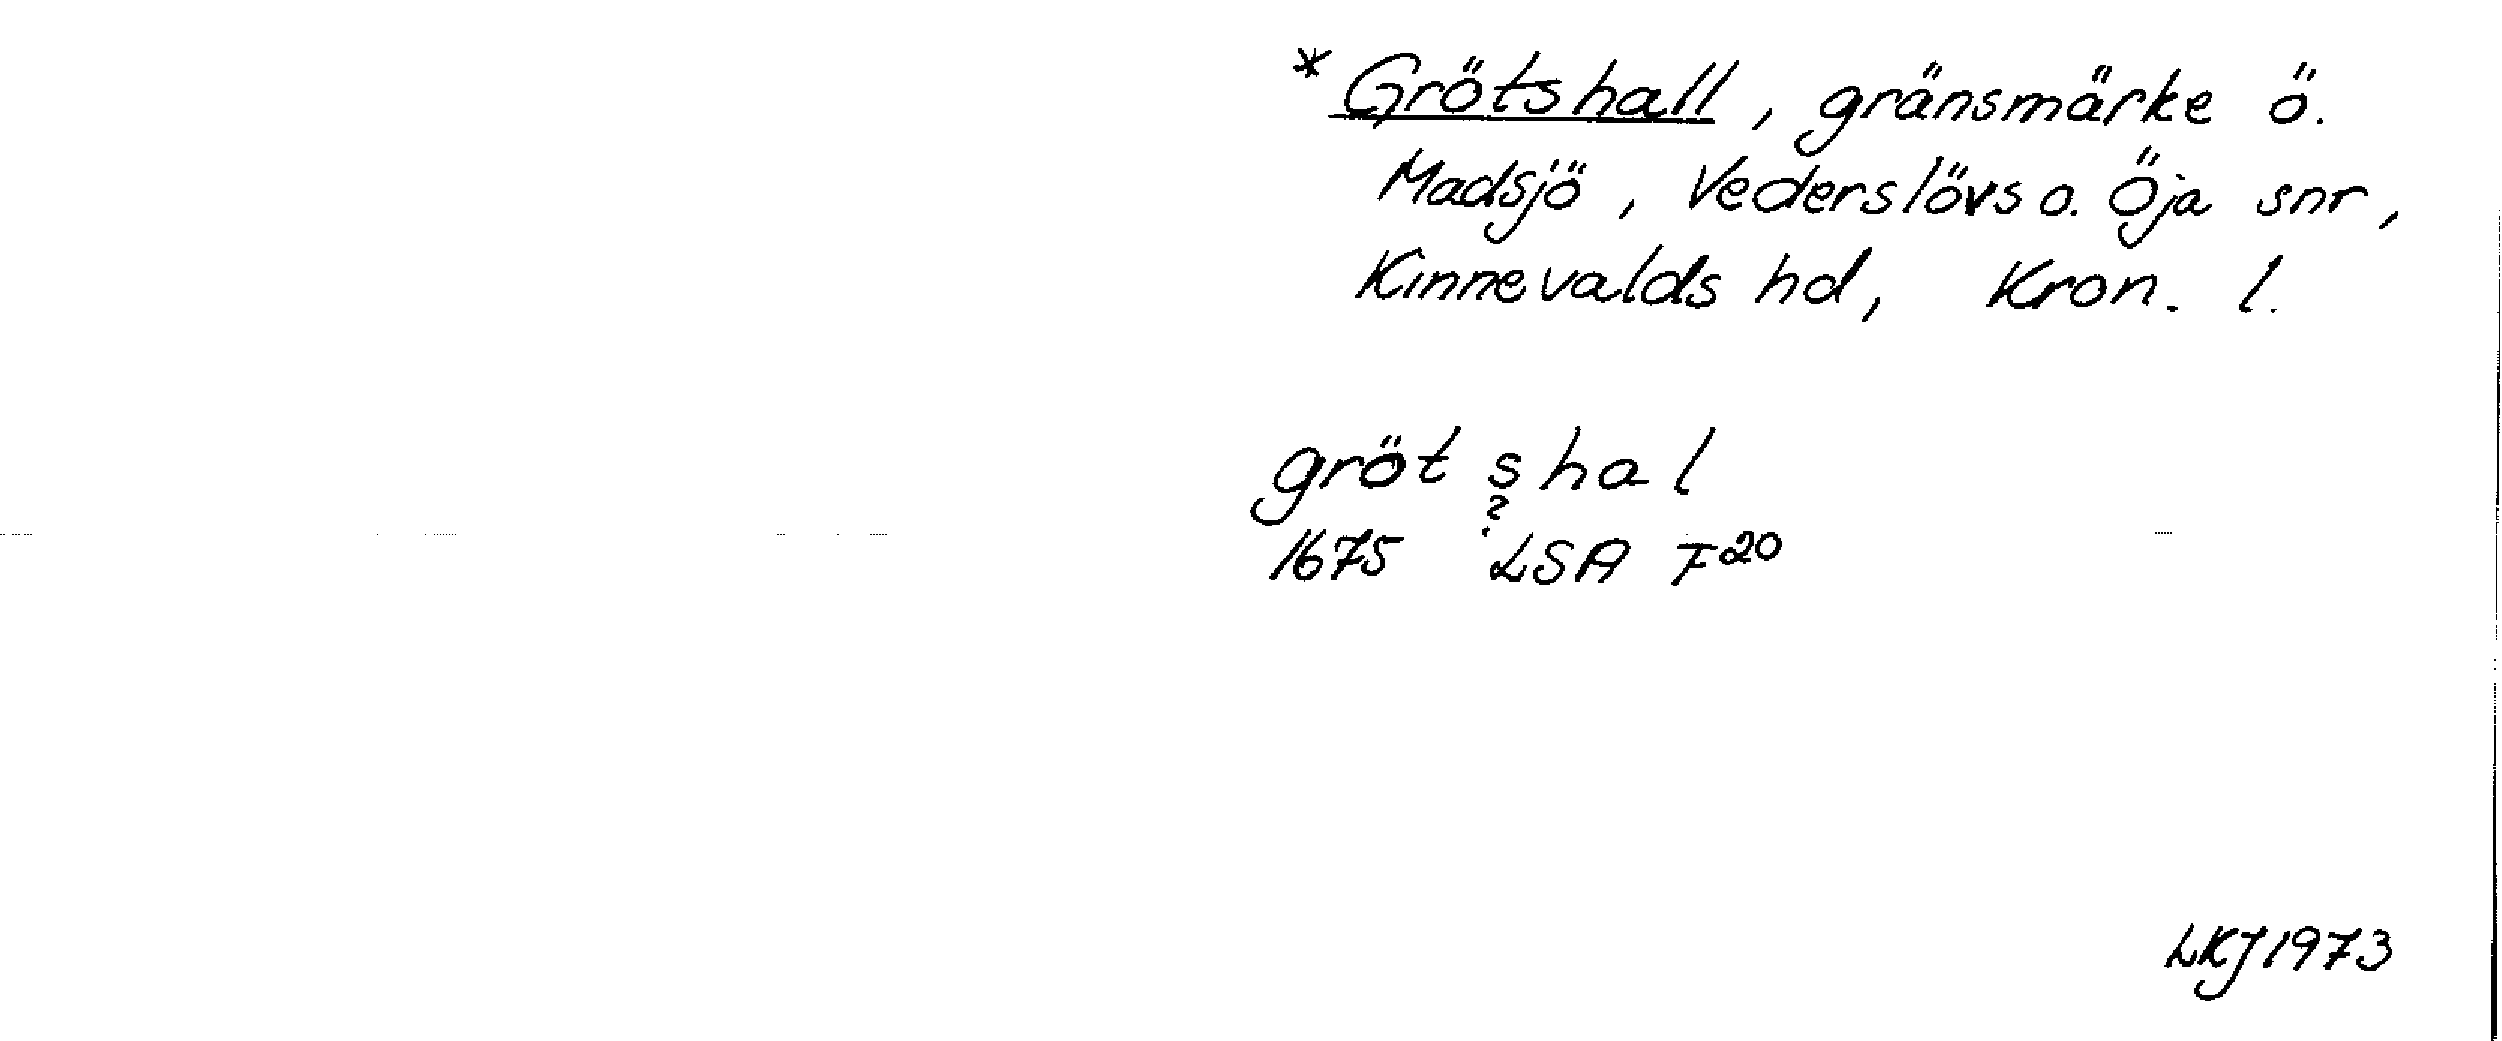 * Grötshall, gränsmärke ö.
Madsjö, Vederslövs o. Öja snr,
Kinnevalds hd, Kron. l.
gröt s hal
?
1675 LSA F20
LKJ 1973